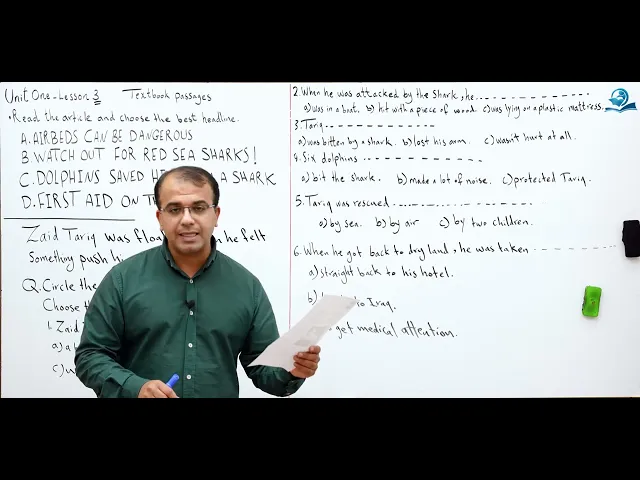 Unit One - Lesson 3 Textbook passages
• Read the article and choose the best headline.
A. AIRBEDS CAN BE DANGEROUS
B. WATCH OUT FOR RED SEA SHARKS!
C. DOLPHINS SAVED A SHARK
D. FIRST AID ON
Zaid Tariq was he felt
Something push
Q. Circle the
Choose
1. Zaid
a)
c)
2. When he was attacked by the shark, he
a) was in a boat. b) hit with a piece of wood. c) was lying on a plastic mattress.
3. Tariq
a) was bitten by a shark. b) lost his arm. c) wasn't hurt at all.
4. Six dolphins
a) bit the shark. b) made a lot of noise. c) protected Tariq.
5. Tariq was rescued
a) by sea. b) by air c) by two children.
6. When he got back to dry land, he was taken
a) straight back to his hotel.
b) to Iraq.
get medical attention.